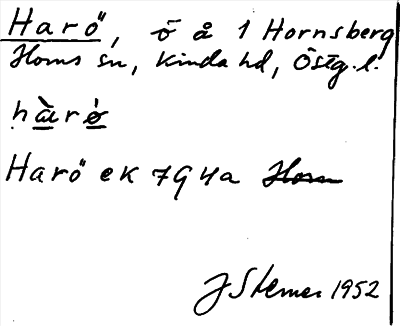 Harö, ö å 1 Hornsberg
Horns sn, Kinda hd, Östg.l.
hàrö̀
Harö ek 7G 4a Horn
J Sterner 1952